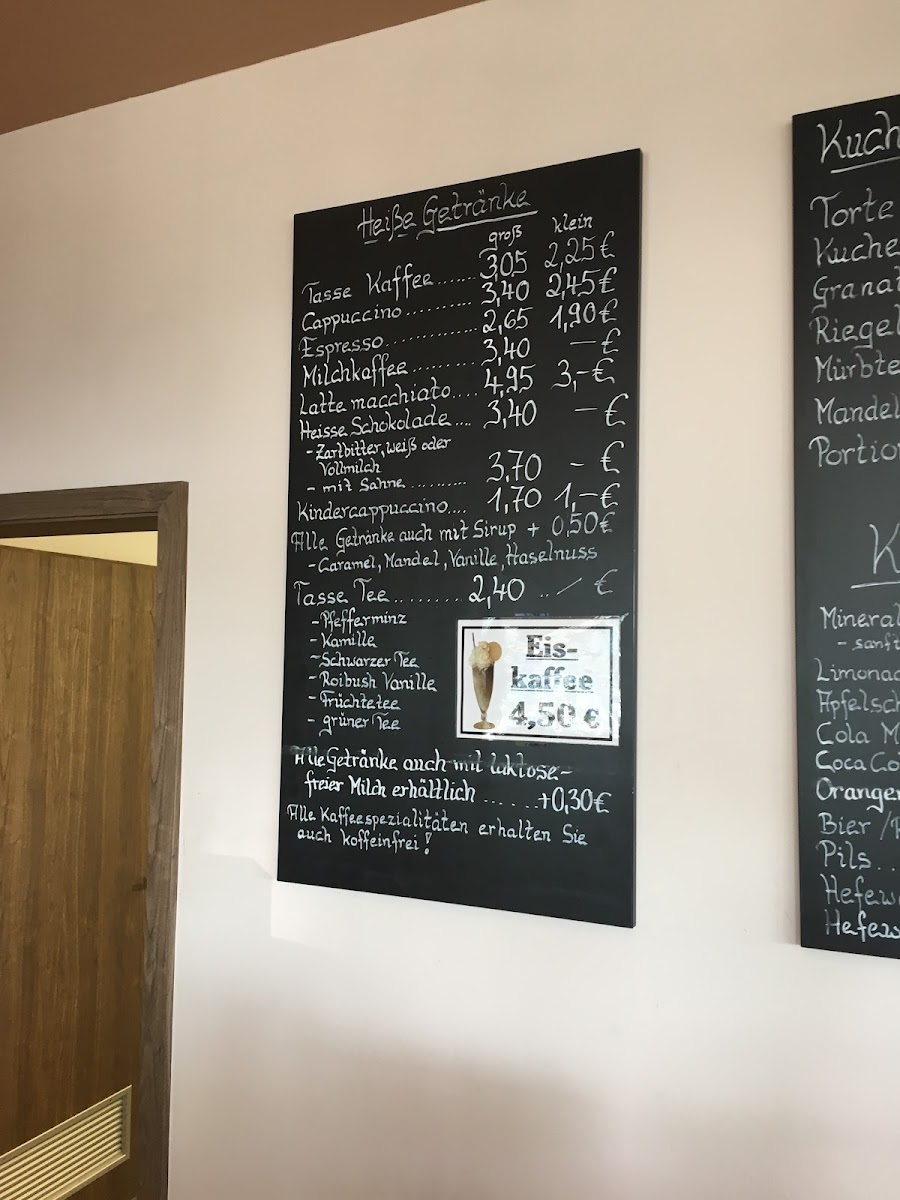 Heiße Getränke
groß klein
Tasse Kaffee...... 3,05 2,25€
Cappuccino.......... 3,40 2,45€
Espresso.............. 2,65 1,90€
Milchkaffee.......... 3,40 —€
Latte macchiato.... 4,95 3,-€
Heisse Schokolade.... 3,40 — €
- Zartbitter, weiß oder
Vollmilch
- mit Sahne........... 3,70 - €
Kindercappuccino.... 1,70 1,-€
Alle Getränke auch mit Sirup + 0,50€
- Caramel, Mandel, Vanille, Haselnuss
Tasse Tee......... 2,40 .. / €
- Pfefferminz
- Kamille
- Schwarzer Tee
- Roibush Vanille
- Früchtetee
- grüner Tee
Eis-
kaffee
4,50 €
Alle Getränke auch mit laktose-
freier Milch erhältlich ...... +0,30€
Alle Kaffeespezialitäten erhalten Sie
auch koffeinfrei!
Kuch
Torte
Kuche
Granat
Riegel
Mürbte
Mandel
Portion
K
Mineral
- sanft
Limonad
Apfelsch
Cola M
Coca Co
Orangen
Bier /
Pils..
Hefew
Hefew